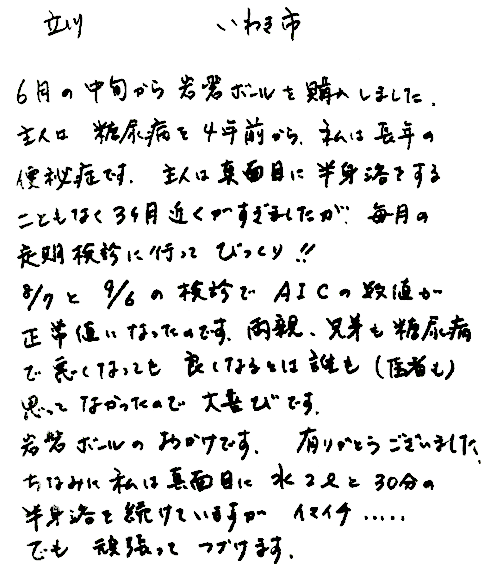 立川 いわき市
6月の中旬から岩盤ボールを購入しました.
主人は 糖尿病を4年前から、私は長年の
便秘症です. 主人は真面目に半身浴をする
こともなく3ヶ月近くがすぎましたが、毎月の
定期検診に行って びっくり!!
8/7と9/6の検診で AICの数値が
正常値になったのです. 両親、兄弟も糖尿病
で悪くなっても 良くなるとは誰も(医者も)
思ってなかったので 大喜びです.
岩盤ボールのおかげです. 有りがとうございました.
ちなみに私は真面目に 水2ℓと30分の
半身浴を続けていますが イマイチ.....
でも 頑張って つづけます.